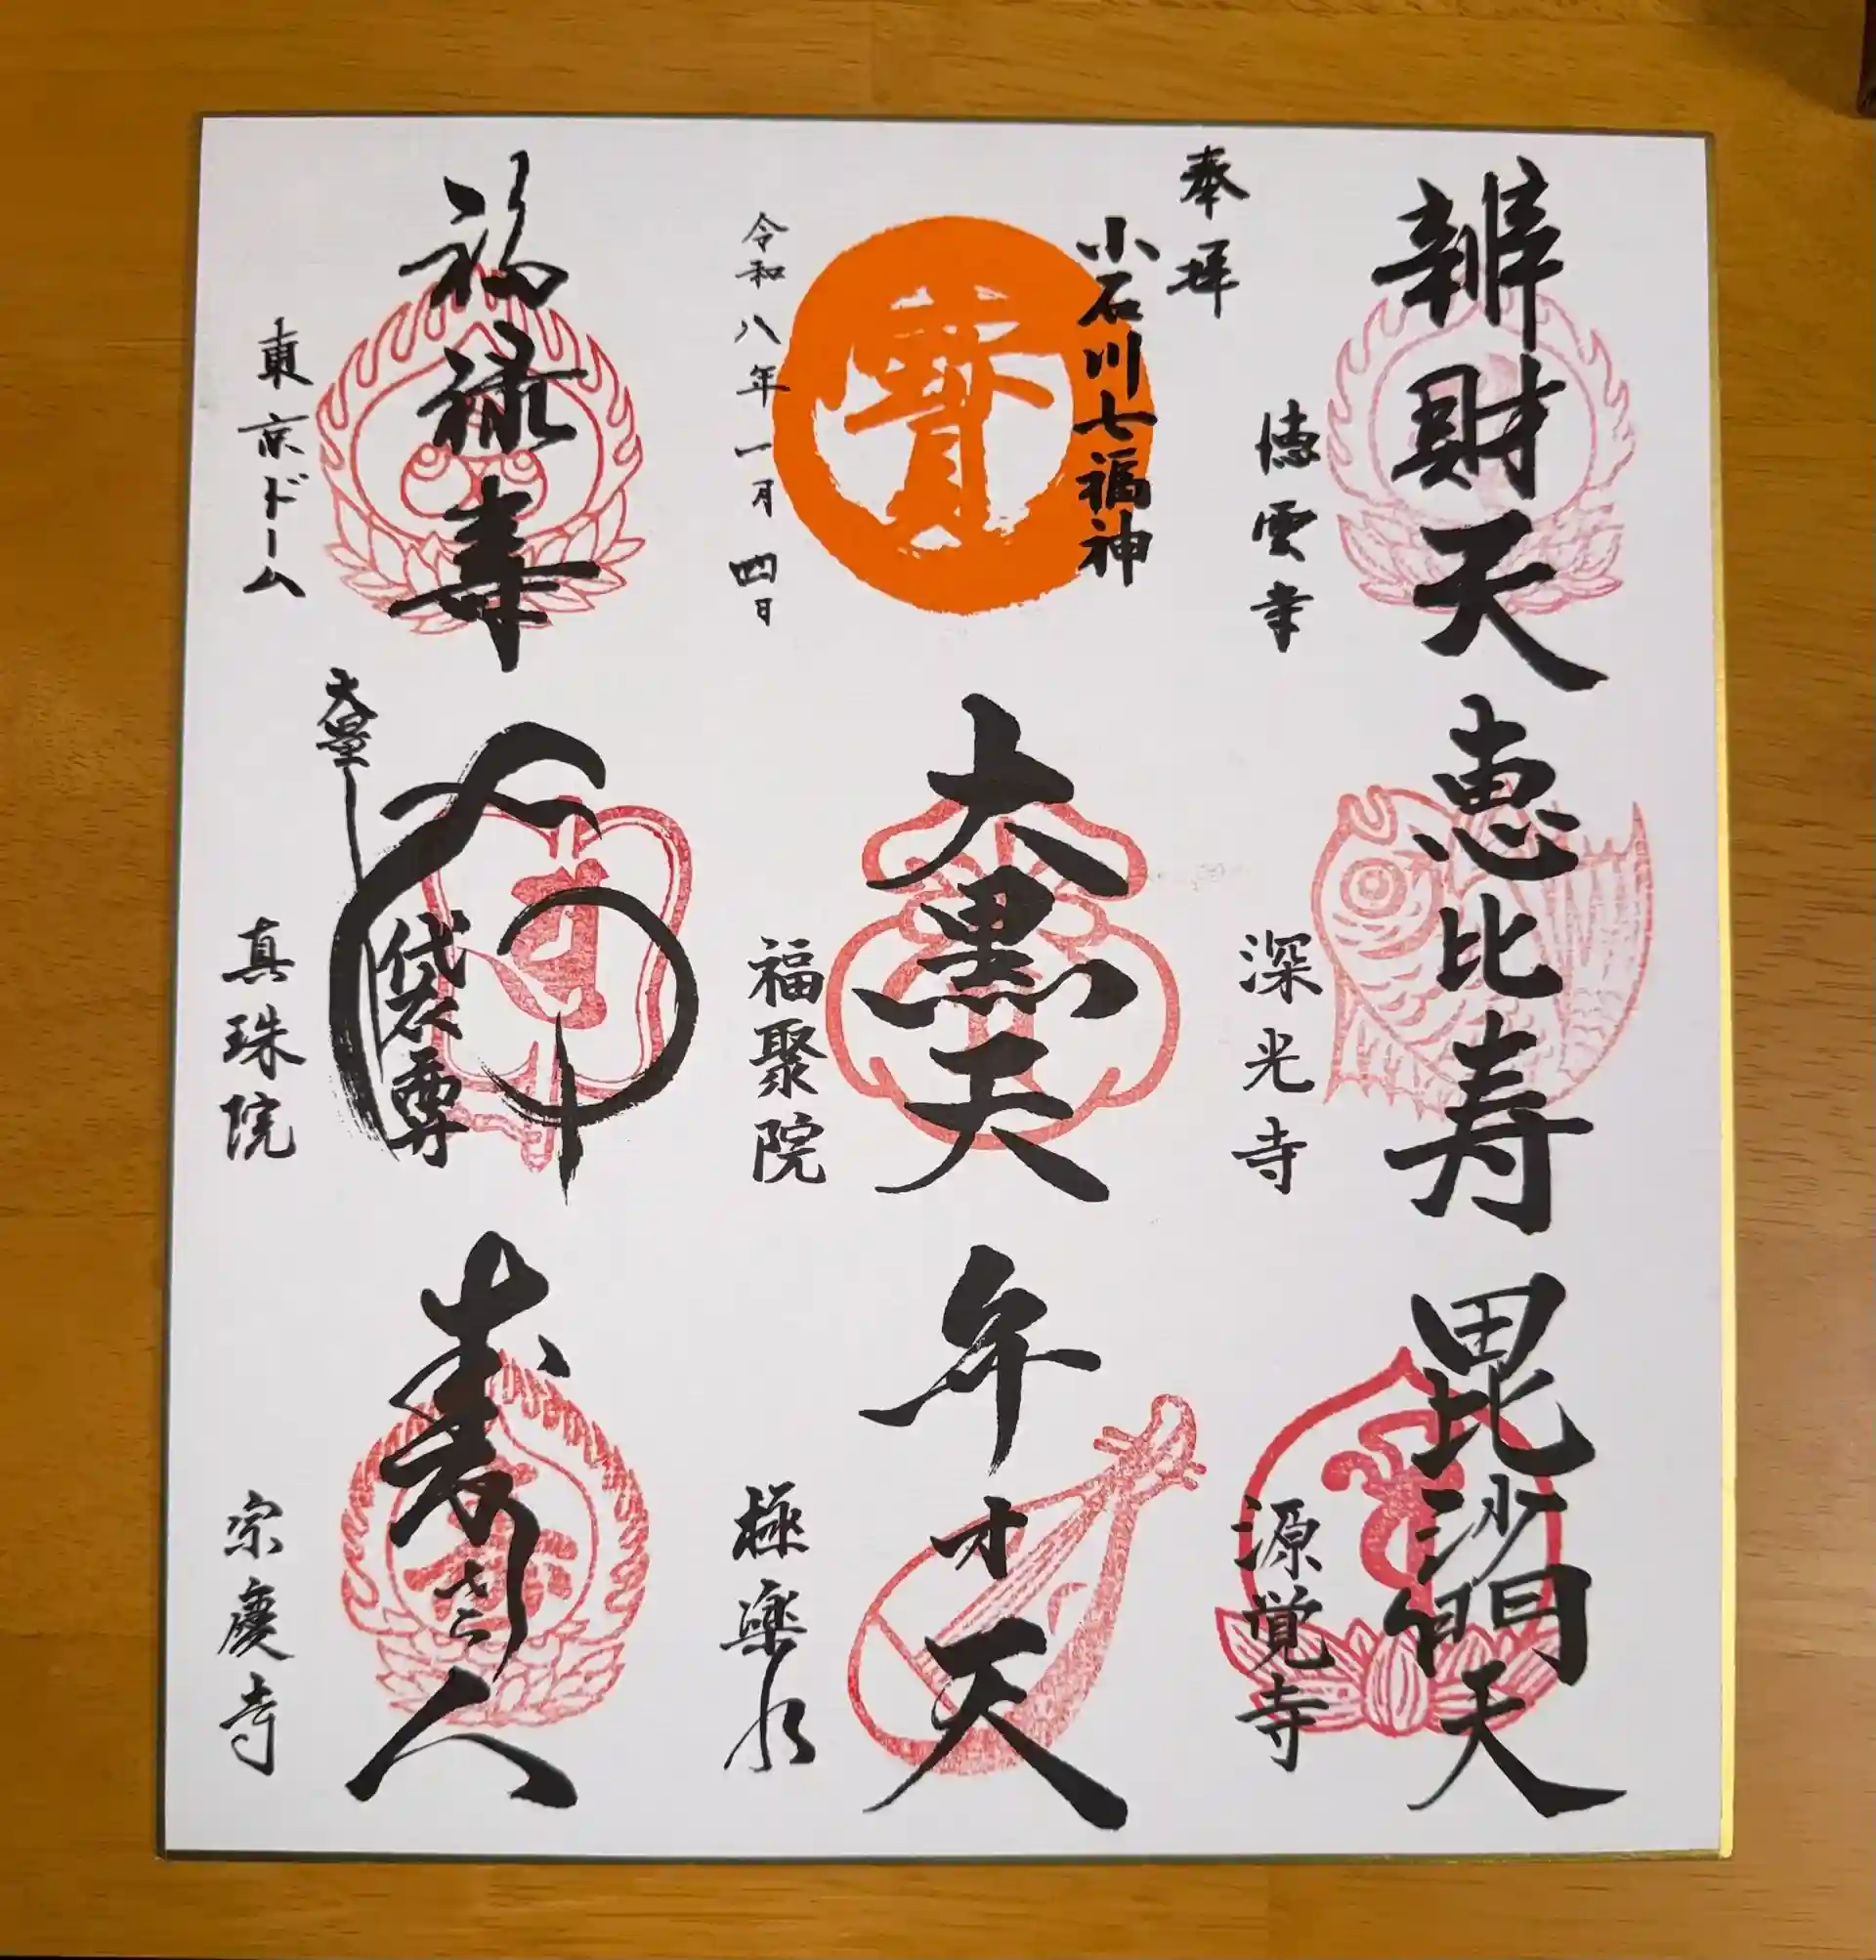 辨財天
徳雲寺
奉拝
小石川七福神
寳
令和八年一月四日
福禄寿
東京ドーム
恵比寿
深光寺
大黒天
福聚院
大量
袋尊
真珠院
毘沙門天
源覚寺
弁才天
極楽水
寿老人
宗慶寺